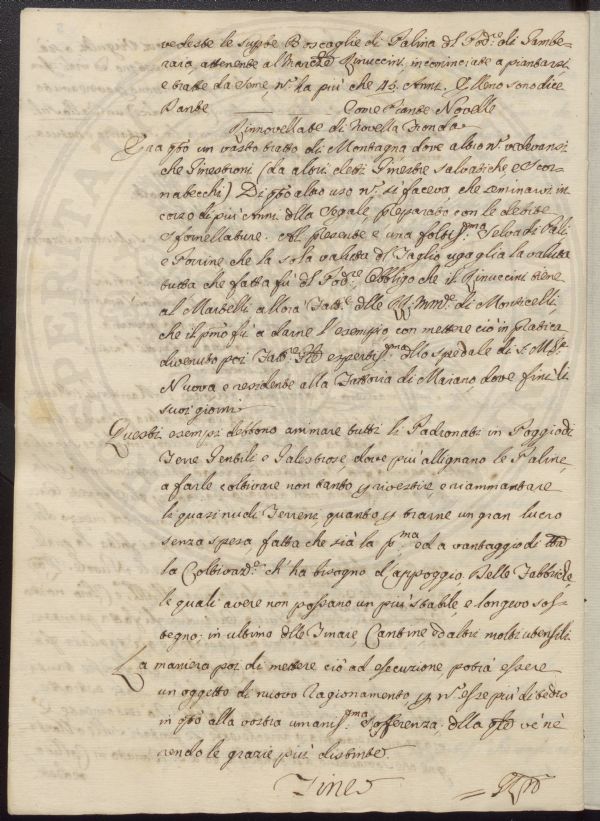 vedeste le supte Boscaglie di Palina dl Pod.e di Gambe-
raia, attenente al March.e Rinuccini, incominciate a piantarsi,
e tratte da Seme, n. ha più che 45. Anni. E lleno sono dice
Dante ——— Come Piante Novelle
Rinnovellate di Novella Fronda
Era qto un vasto tratto di Montagna dove altro n. vedevansi
che Ginestroni (da altri detti Ginestre salvatiche e Scor-
nabecchi) Di qto altro uso n. si faceva che seminarvi in
corso di più Anni dlla Segale, preparato con le debite
Sfornellature. Al presente è una foltis.ma Selva di Pali
e Forrine che la sola valuta dl Taglio uguaglia la valuta
tutta che fatta fù dl Pod.re Obbligo che il Rinuccini tiene
al Martelli allora Fatt.e dlle RR. Mon.e di Monticelli,
che il pmo fù a darne l'esempio con mettere ciò in pratica
divenuto poi Fatt.e espertis.mo dllo Spedale di S. M.a
Nuova e residente alla Fattoria di Maiano, dove finì li
suoi giorni
Questi esempi debbono animare tutti li Padronati in Poggio di
Terre Gentili e Galestrose, dove più allignano le Paline,
a farle coltivare non tanto p rivestire e riammantare
li quasi nudi Terreni, quanto p trarne un gran lucro
senza spesa fatta che sià la p.ma ed a vantaggio di
la Coltivaz.e ch' ha bisogno d'appoggio. Delle Fabbriche
le quali avere non possano un più stabile, e longevo sos-
tegno; in ultimo dlle Tinare, Cantine, ed altri molti utensili.
La maniera poi di mettere ciò ad esecuzione, potrà essere
un oggetto di nuovo Ragionamento, p n. essre più di tedio
in qto alla vostra umanis.ma Sofferenza; dlla qle ve ne
rendo le grazie più distinte.
Fine